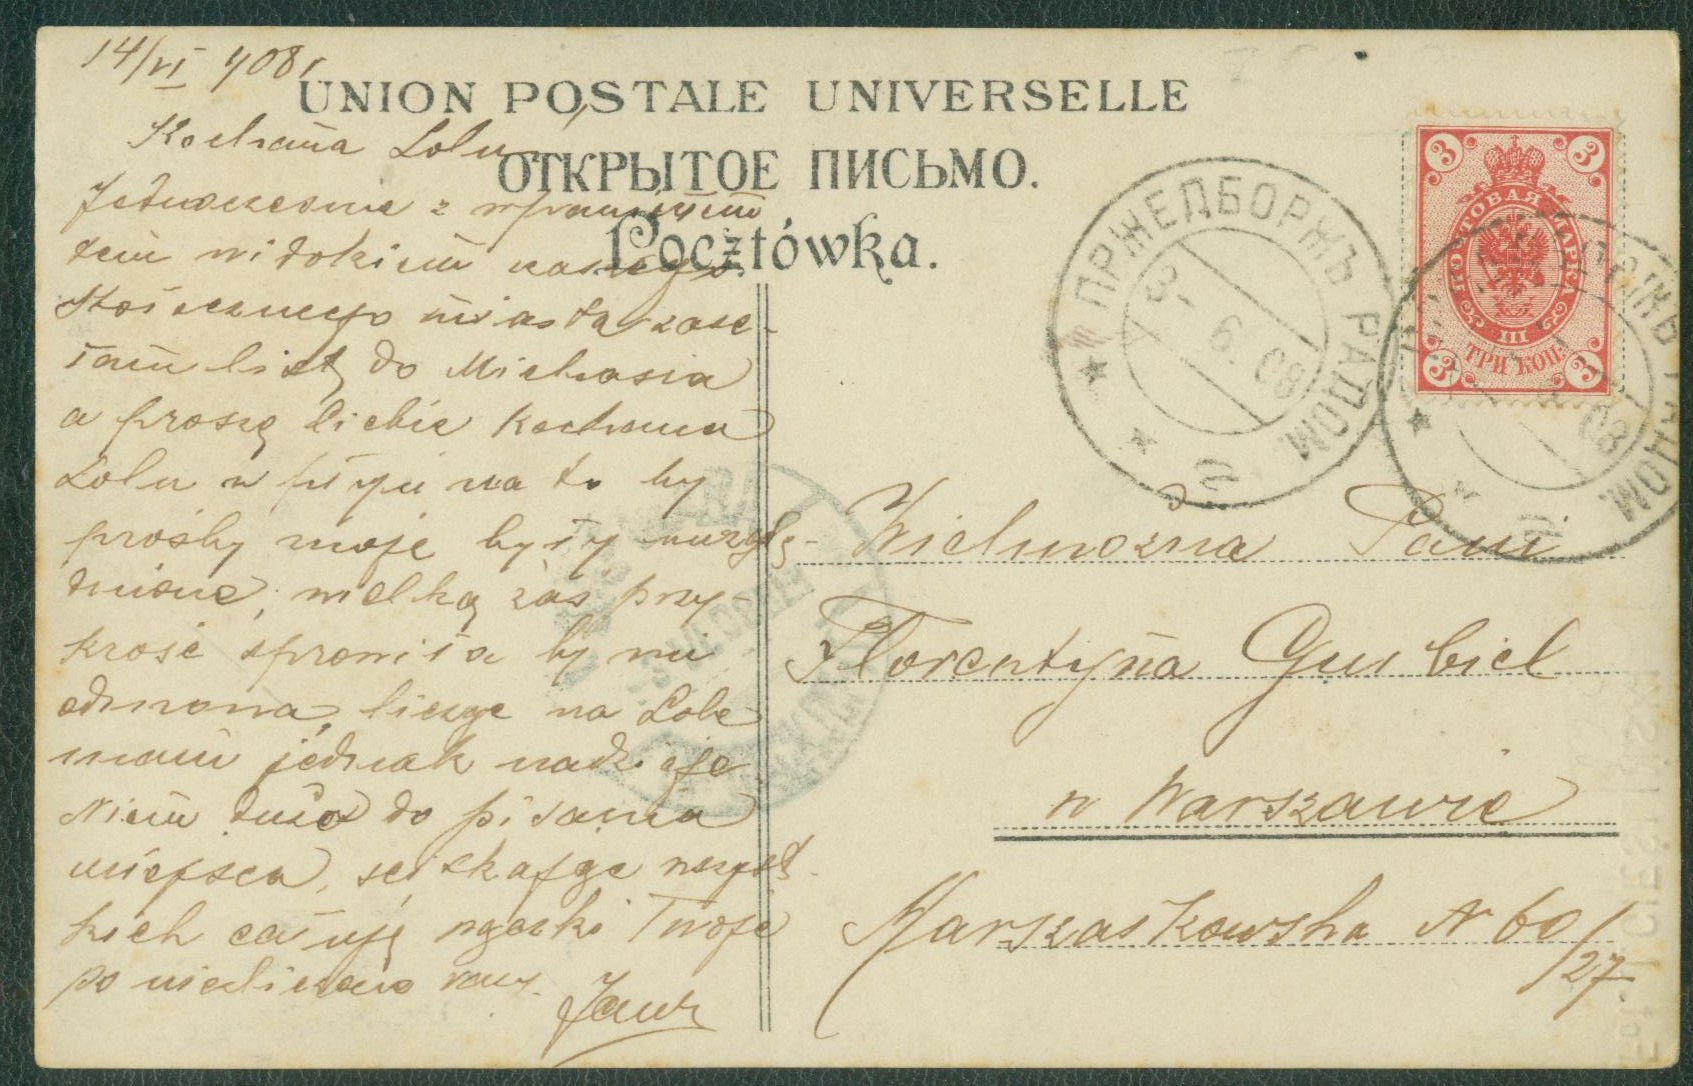 14/VI 908 r
UNION POSTALE UNIVERSELLE
ОТКРЫТОЕ ПИСЬМО.
Pocztówka.
Kochana Lolu
Jednocześnie z
tem widokiem naszego
stołecznego miasta zase-
łam list do Michasia
a proszę Ciebie Kochana
Lolu w to by
prośby moje były uwzglę-
dnione, wielką zaś przy-
krość sprawiła by mi
odmowa, liczyć na Lole
mam jednak nadzieję
Niem do pisania
miejsca, ściskając wszyst-
kich całuję rączki Twoje
po niezliczone razy.
ПРЖЕДБОРЖЪ РАДОМ.
3. 6. 08
ПОЧТОВАЯ МАРКА
3 3
III
ТРИ КОП.
3 3
РАДОМ.
08
Wielmożna Pani
Florentyna Gurbiel
w Warszawie
Marszałkowska N 60/27